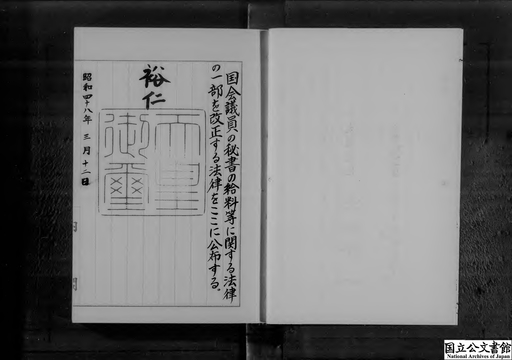 国会議員の秘書の給料等に関する法律
の一部を改正する法律をここに公布する。
裕仁
天皇
御璽
昭和四十八年 三月十二日
国立公文書館
National Archives of Japan